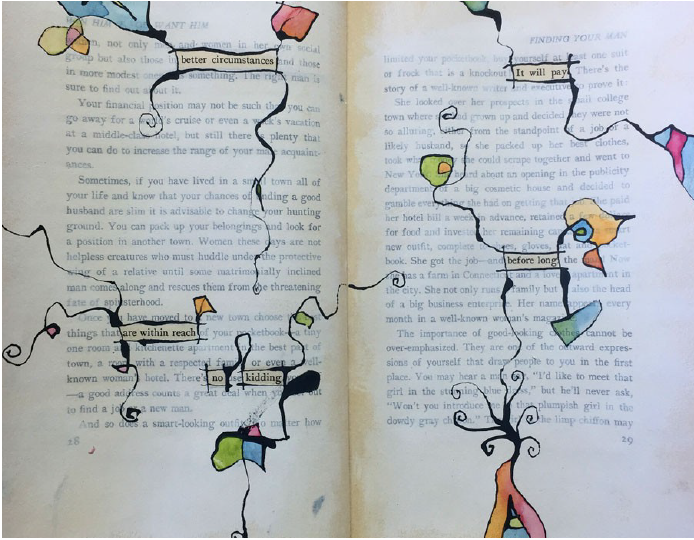 HIM WANT HIM
not only men and women in her own social
group but also those better circumstances and those
in more modest something. The right man is
sure to find out about it.
Your financial position may not be such that you can
go away for a cruise or even a week's vacation
at a middle-class hotel, but still there plenty that
you can do to increase the range of your acquaint-
ances.
Sometimes, if you have lived in a small town all of
your life and know that your chances of finding a good
husband are slim it is advisable to change your hunting
ground. You can pack up your belongings and look for
a position in another town. Women these days are not
helpless creatures who must huddle under the protective
wing of a relative until some matrimonially inclined
man comes along and rescues them from the threatening
fate of spinsterhood.
Once have moved to new town choose
things that are within reach of your pocketbook—a tiny
one room kitchenette apartment in the best part of
town, a room with a respected family or even a well-
known woman's hotel. There's no kidding
—a good address counts a great deal when you out
to find a job a new man.
And so does a smart-looking outfit no matter how
28
FINDING YOUR MAN
limited your pocketbook. yourself at least one suit
or frock that is a knockout. It will pay. There's the
story of a well-known writer and executive prove it.
She looked over her prospects in the small college
town where grown up and decided they were not
so alluring, either from the standpoint of a job or a
likely husband, so she packed up her best clothes,
took what she could scrape together and went to
New York. heard about an opening in the publicity
department of a big cosmetic house and decided to
gamble everything she had on getting that She paid
her hotel bill a week in advance, retained a few
for food and invested her remaining
new outfit, complete shoes, gloves,
book. She got the job—and before long the
has a farm in Connecticut and a apartment in
the city. She not only runs family but is also the head
of a big business enterprise. Her name appears every
month in a well-known woman's magazine.
The importance of good-looking clothes cannot be
over-emphasized. They are one of the outward expres-
sions of yourself that draw people to you in the first
place. You may hear a man say, "I'd like to meet that
girl in the stunning blue dress," but he'll never ask,
"Won't you introduce me to that plumpish girl in the
dowdy gray the limp chiffon may
29